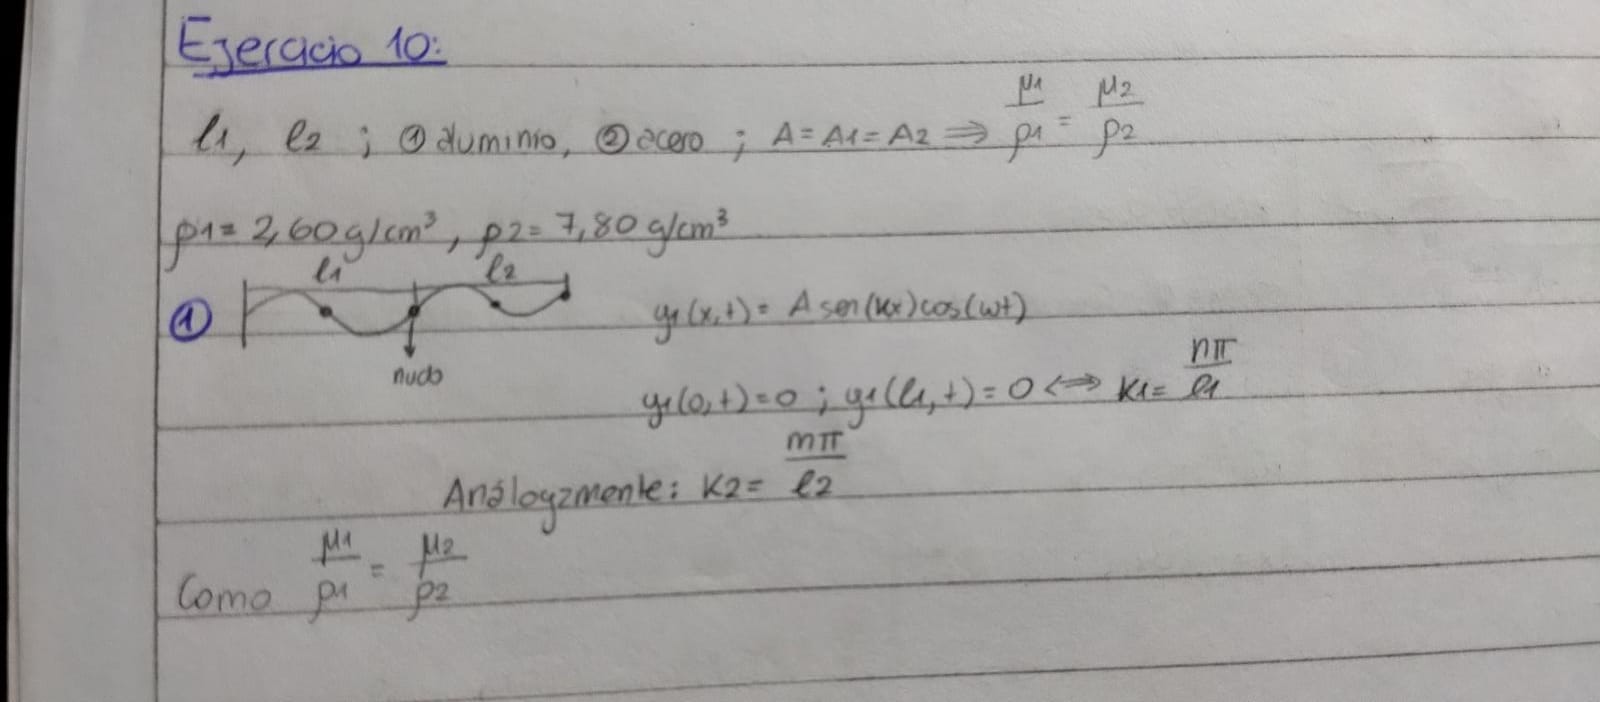 Ejercicio 10:
l1, l2 ; ① aluminio, ② acero ; A = A1 = A2 ⟹ μ1/ρ1 = μ2/ρ2
ρ1 = 2,60 g/cm³, ρ2 = 7,80 g/cm³
l1 l2
① y1(x,t) = A sen(kx) cos(wt)
nudo
y1(0,t) = 0 ; y1(l1,t) = 0 ⟺ K1 = nπ/l1
Análogamente: K2 = mπ/l2
Como μ1/ρ1 = μ2/ρ2